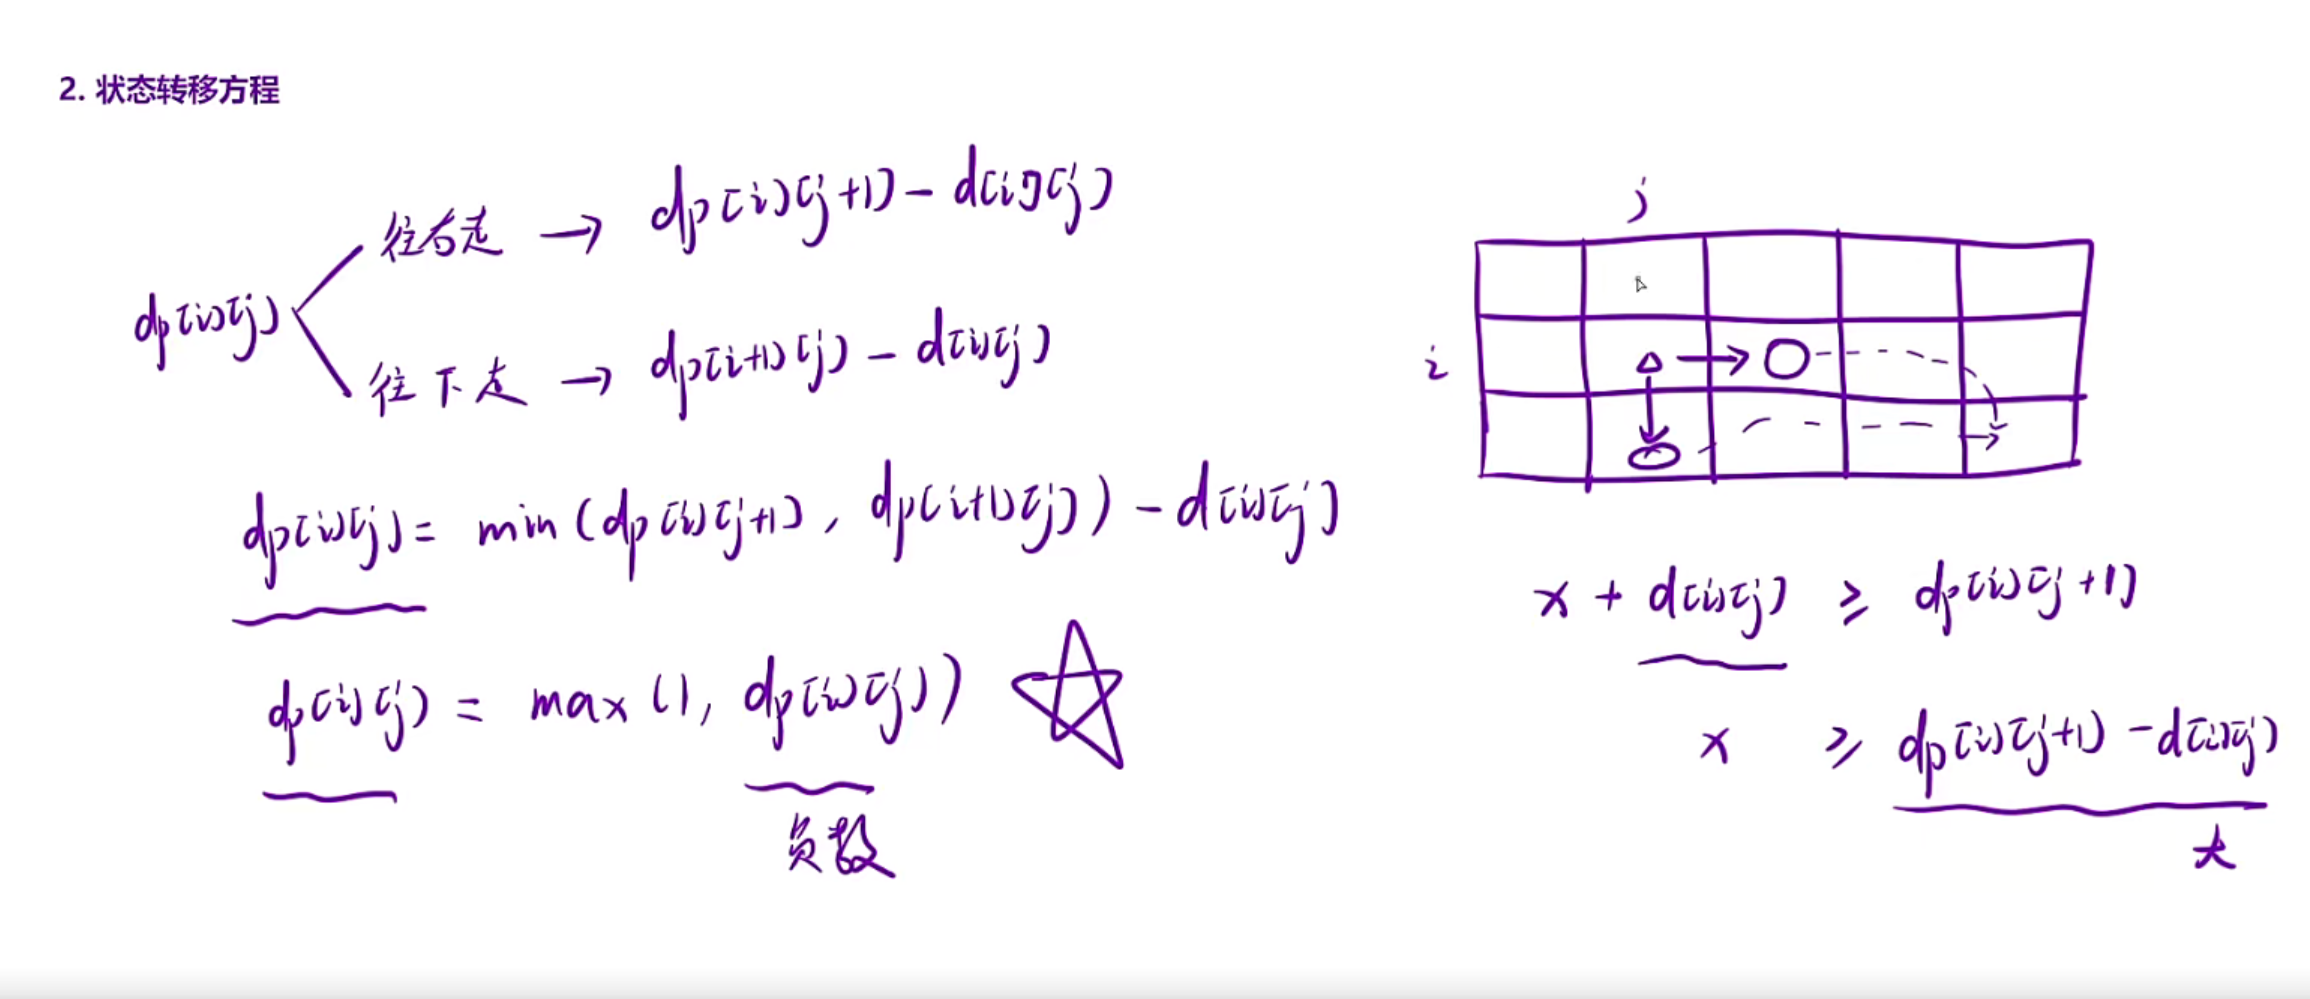 2. 状态转移方程
往右走 → dp[i][j+1] - d[i][j]
dp[i][j]
往下走 → dp[i+1][j] - d[i][j]
dp[i][j] = min(dp[i][j+1], dp[i+1][j]) - d[i][j]
dp[i][j] = max(1, dp[i][j])
负数
j
i
x + d[i][j] ≥ dp[i][j+1]
x ≥ dp[i][j+1] - d[i][j]
大